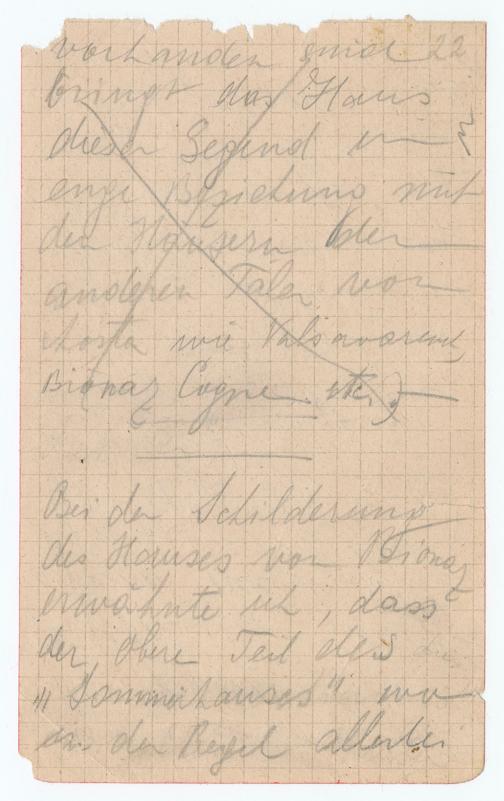 vorhanden sind 22
bringt das Haus
dieser Gegend in
enge Beziehung mit
den Häusern der
anderen Täler von
Aosta wie Valsavarenche,
Bionaz Cogne etc.)
Bei der Schilderung
des Hauses von Bionaz
erwähnte ich, dass
der obere Teil des
"Sommerhauses" wo
in der Regel allerlei